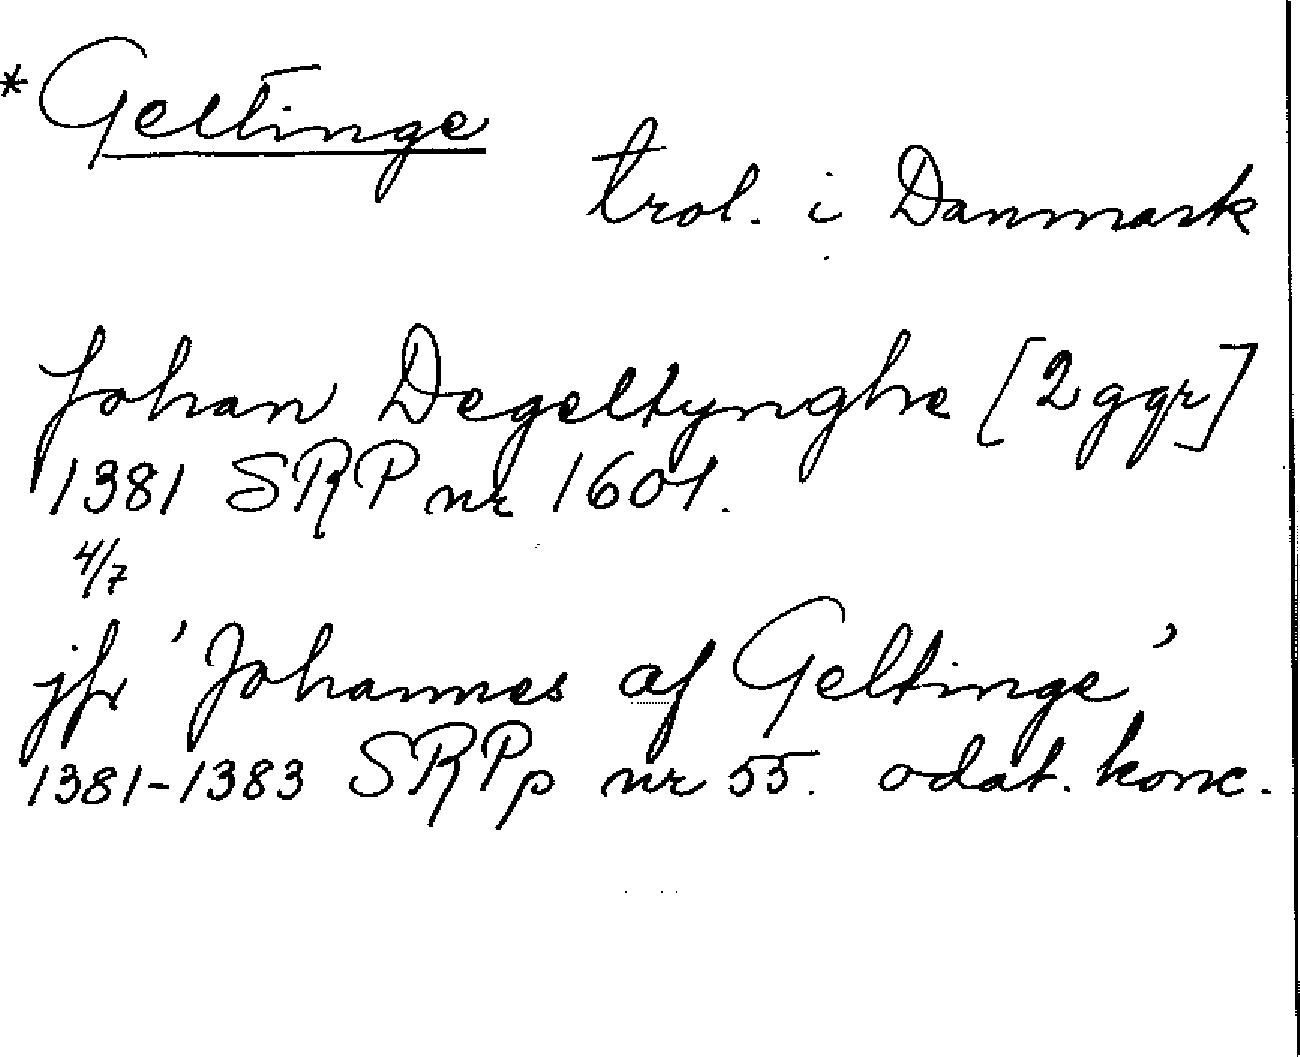 * Geltinge
trol. i Danmark
Johan Degeltynghe [2 ggr]
1381 SRP nr 1601.
4/7
jfr 'Johannes af Geltinge'
1381-1383 SRPp nr 55. odat. konc.